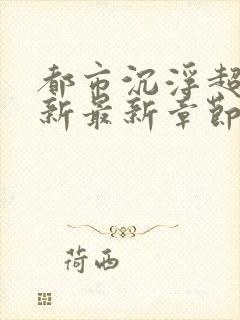 都市沉浮超
新最新章节
荷西